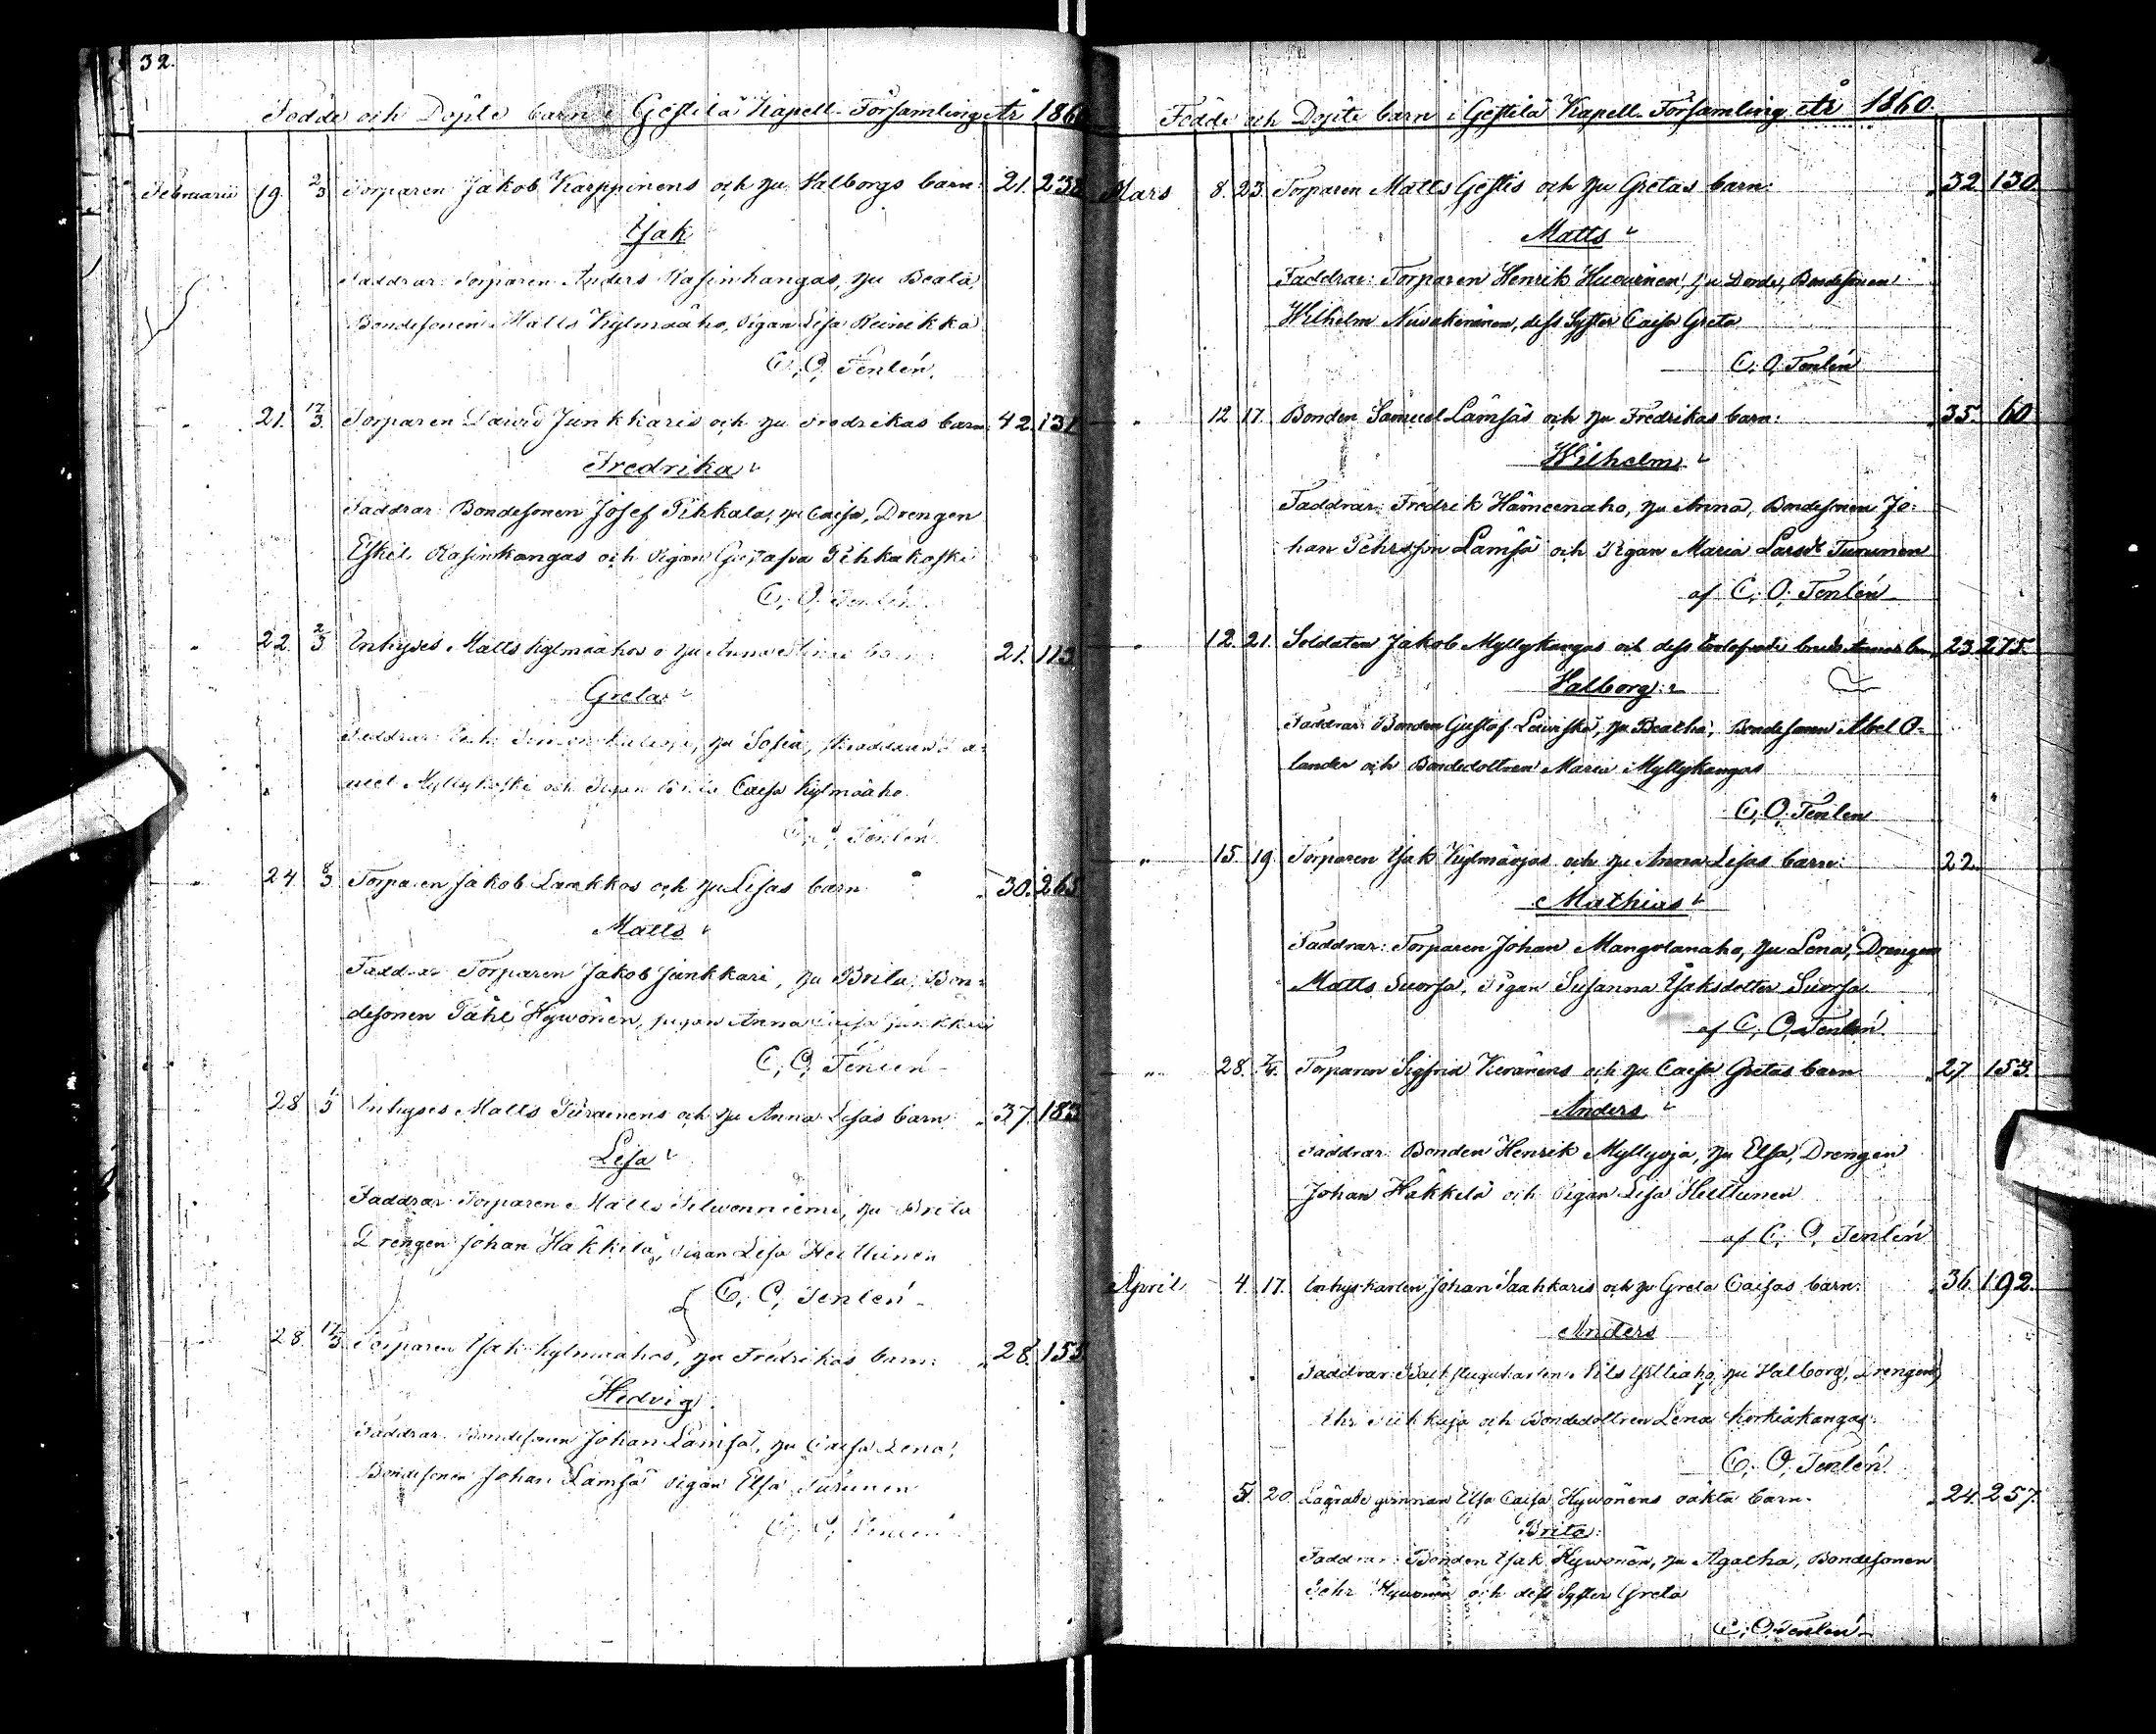 32.
Födde och Döpte barn i Gestilä Kapell-Församling År 1860
Februarii 19. 2/3 Torparen Jakob Karppinens och hu Walborgs barn: 21. 238
Isak
Faddrar: Torparen Anders Rasinkangas, hu Beata,
Bondesonen Matts Kylmäaho, Pigan Lisa Reinikka
C. O. Tenlén.
21. 17/3. Torparen David Junkkaris och hu Fredrikas barn 42. 131
Fredrika
Faddrar: Bondesonen Josef Pihkala, hu Caisa, Drengen
Eskil Rasinkangas och Pigan Gustafva Pihkakoski
C. O. Tenlén.
22. 2/3 Inhyses Matts Kylmäahos o hu Anna Stinas barn 21. 113
Greta
Faddrar: Simon hu Sofia,
Myllykoski och Pigan Caisa Kylmäaho
C. O. Tenlén
24. 8/3 Torparen Jakob Laukkos och hu Lisas barn 30. 265
Matts
Faddrar Torparen Jakob Junkkari, hu Brita, Bon-
desonen Påhl Hywönen, pigan Anna Caisa Junkkari
C. O. Tenlén
28 1/3 Inhyses Matts Turunens och hu Anna Lisas barn 37. 183
Lisa
Faddrar: Torparen Matts Silwenniemi, hu Brita
Drengen Johan Häkkilä, Pigan Lisa Heittunen
af C. O. Tenlén
28. 17/3 Torparen Isak Kylmäahos, hu Fredrikas barn: 28. 153
Hedvig
Faddrar: Bondesonen Johan Lämsä, hu Caisa Lena,
Bondesonen Johan Lämsä Pigan Elsa Turunen
C. O. Tenlén
Födde och Döpte barn i Gestilä Kapell-Församling År 1860.
Mars 8. 23. Torparen Matts Gestis och hu Gretas barn: 32. 130.
Matts
Faddrar: Torparen Henrik Huovinen, hu Dorde, Bondesonen
Wilhelm Niwakeränen, dess Syster Caisa Greta
C. O. Tenlén
" 12 17. Bonden Samuel Lämsäs och hu Fredrikas barn: 35. 60
Wilhelm
Faddrar: Fredrik Hämeenaho, hu Anna, Bondesonen Jo-
han Pehrsson Lämsä och Pigan Maria Larsdr Turunen
af C. O. Tenlén
" 12. 21. Soldaten Jakob Myllykangas och dess trolofvade bruds Annas barn 23. 275.
Walborg:
Faddrar: Bonden Gustaf Lawiska, hu Beatha, Bondesonen Abel O-
lander och Bondedottren Maria Myllykangas
C. O. Tenlén
" 15. 19 Torparen Isak Kylmäojas och hu Anna Lisas barn: 22.
Mathias
Faddrar: Torparen Johan Mangolanaho, hu Lena, Drengen
Matts Suorsa, Pigan Susanna Isaksdotter Suorsa
af C. O. Tenlén
" 28. 7/4. Torparen Sigfrid Keränens och hu Caisa Gretas barn 27. 153.
Anders
Faddrar: Bonden Henrik Myllyoja, hu Elsa, Drengen
Johan Häkkilä och Pigan Lisa Heittunen
af C. O. Tenlén
April 4. 17. Inhys-karlen Johan Saahkaris och hu Greta Caisas barn: 36. 192.
Anders
Faddrar: Nils Ylliaho, hu Walborg, Drengen
och Bondedottren Lena Korkiakangas
C. O. Tenlén
" 5. 20 Lägrade qvinnan Elsa Caisa Hywönens oäkta barn. 24. 257.
Brita:
Faddrar: Bonden Isak Hywönen, hu Agatha, Bondesonen
Pehr Hywönen och dess Syster Greta
C. O. Tenlén